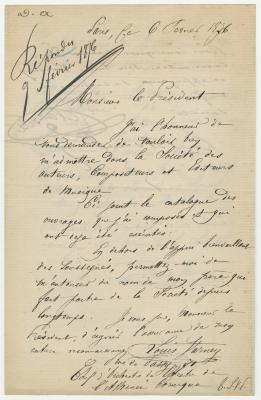 Paris, le 6 Février 1876
Répondu
9 février 1876
Monsieur le Président
J'ai l'honneur de
vous demander de vouloir bien
m'admettre dans la Société des
Auteurs, Compositeurs et Editeurs
de Musique
Ci joint le catalogue des
ouvrages que j'ai composés & qui
ont déjà été exécutés.
En dehors de l'appui bienveillant
des soussignés, permettez-moi de
m'autoriser du nom de mon père qui
fait partie de la Société depuis
longtemps.
Je vous prie, Monsieur le
Président, d'agréer l'assurance de mes
Louis Varney
Rue de
Chef d'orchestre du théâtre de
l'Athénée Comique